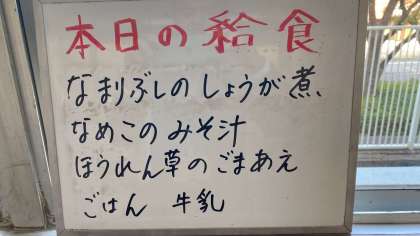 本日の給食
なまりぶしのしょうが煮
なめこのみそ汁
ほうれん草のごまあえ
ごはん 牛乳